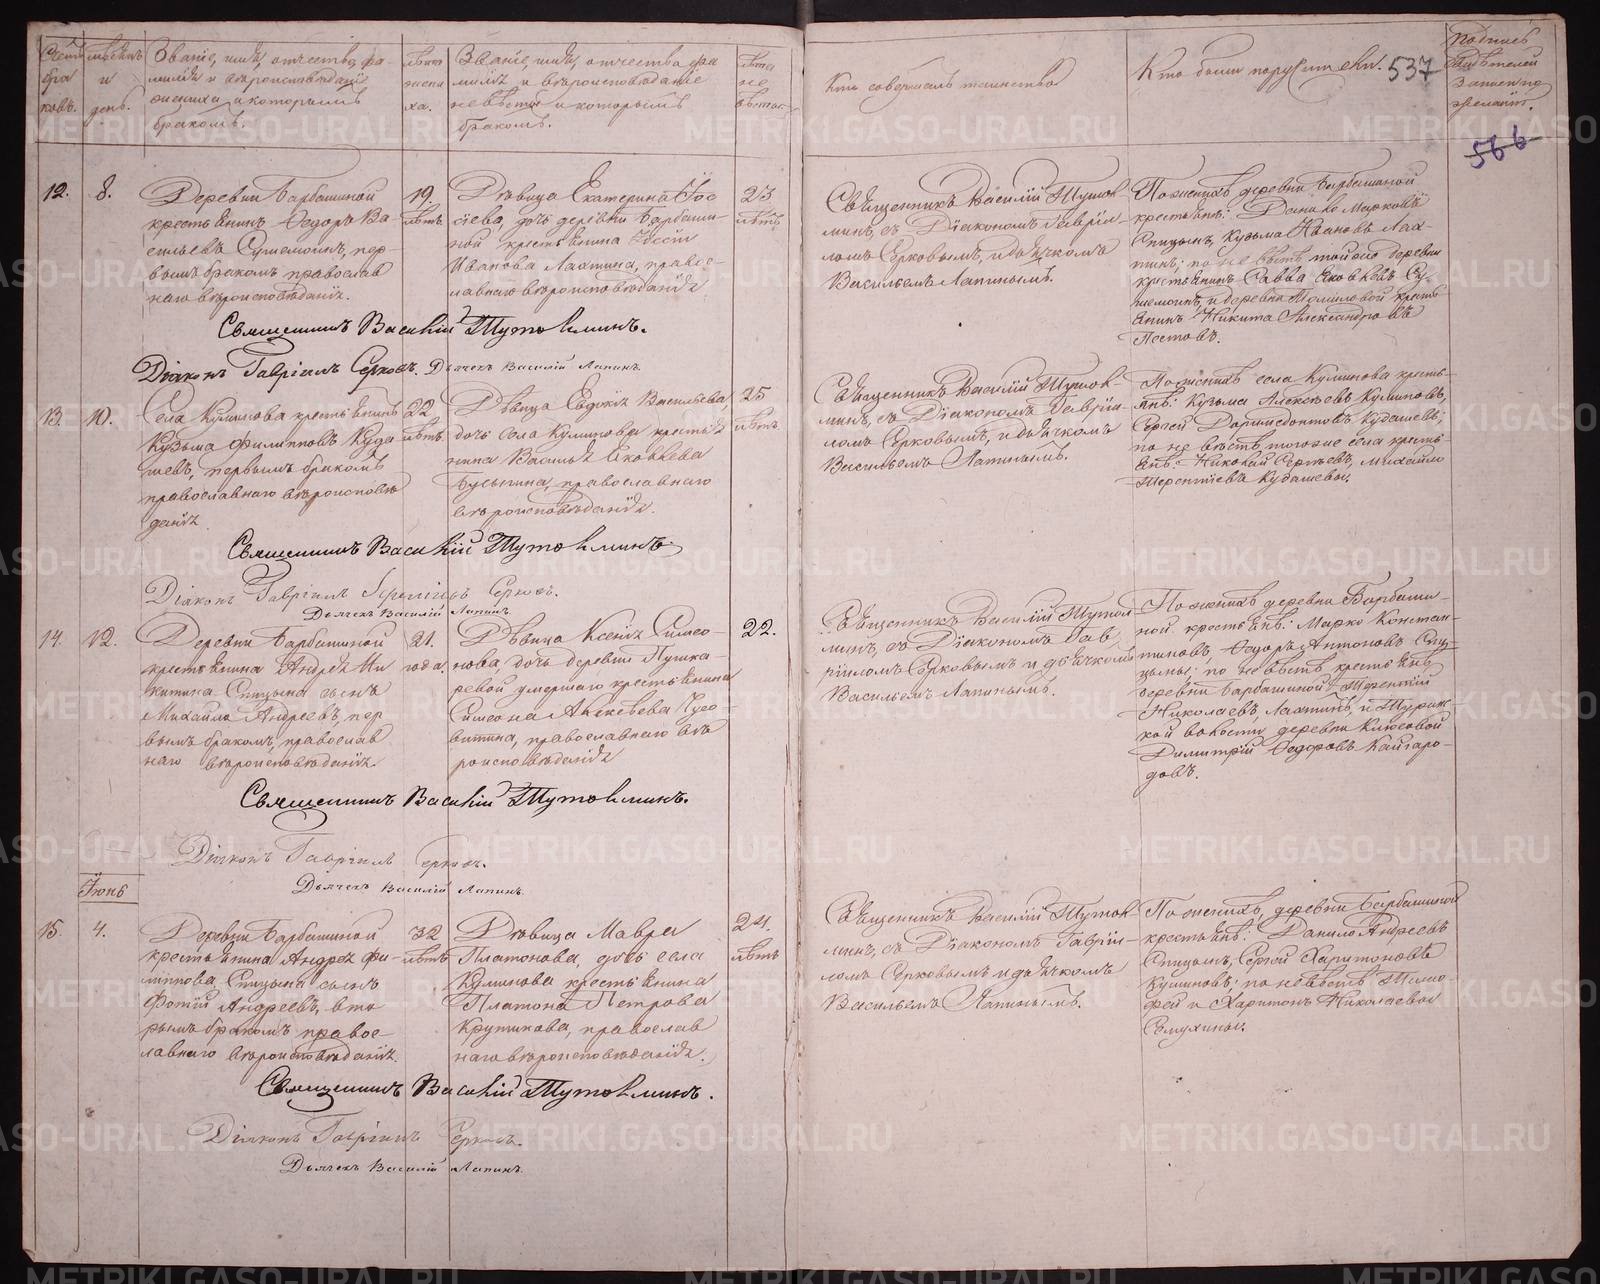 Счетъ
бра
ковъ.
мѣсяцъ
и
день.
Званіе, имя, отчество, фа-
милія и вѣроисповѣданіе
жениха и которымъ
бракомъ.
лѣта
жени
ха.
Званіе, имя, отчество фа
милія и вѣроисповѣданіе
невѣсты и которымъ
бракомъ.
лѣта
не
вѣсты
Кто совершалъ таинство
Кто были поручители.
537
Подпись
свидѣтелей
записи по
желанію.
566
12.
8.
Деревни Барбашиной
крестьянинъ Ѳедоръ Ва-
сильевъ Сушемоинъ, пер-
вымъ бракомъ православ
наго вѣроисповѣданія.
19.
лѣтъ
Дѣвица Екатерина
дочь деревни Барбаши-
ной крестьянина
Иванова Лахтина, право-
славнаго вѣроисповѣданія
23
лѣтъ
Священникъ Василій Тутол
минъ, съ Діакономъ Гаврiи-
ломъ Серковымъ, и дьячкомъ
Васильемъ Лапинымъ.
По женихѣ деревни Барбашиной
крестьянъ: Данило Марковъ
Спицынъ, Кузьма Ивановъ Лах-
тинъ; по невѣстѣ той же деревни
крестьянинъ Савва Яковлевъ Су-
шемоинъ, и деревни крестъ
янинъ Никита Александровъ
Постовъ.
Священникъ Василій Тутолминъ.
Діаконъ Гавріилъ Серковъ. Дьячекъ Василій Лапинъ.
13.
10.
Села Куминова крестьянинъ
Кузьма Филипповъ Куда
шевъ, первымъ бракомъ
православнаго вѣроисповѣ
данія.
22
лѣтъ
Дѣвица Евдокія Васильева,
дочь села Куминова крестья
нина Василья Яковлева
Бусыгина, православнаго
вѣроисповѣданія.
25
лѣтъ
Священникъ Василій Тутол-
минъ, съ Діакономъ Гаврiи-
ломъ Серковымъ, и дьячкомъ
Васильемъ Лапинымъ.
По женихѣ села Куминова кресть-
янъ: Кузьма Алексѣевъ Куминовъ,
Сергѣй Доримедонтовъ Кудашевъ;
по невѣстѣ того же села кресть
янъ: Николай Сергѣевъ, Михайло
Терентіевъ Кудашевы.
Священникъ Василій Тутолминъ.
Діаконъ Гавріилъ Серковъ.
Дьячекъ Василій Лапинъ.
14.
12.
Деревни Барбашиной
крестьянина Андрея Ни
китина Спицына сынъ
Михайло Андреевъ, пер
вымъ бракомъ, православ
наго вѣроисповѣданія.
21.
года.
Дѣвица Ксенія Симео-
нова, дочь деревни Пушка-
ревой умершаго крестьянина
Симеона Алексѣева Чусо-
витина, православнаго вѣ
роисповѣданія
22.
Священникъ Василій Тутол
минъ, съ Діакономъ Гав
ріиломъ Серковымъ и дьячкомъ
Васильемъ Лапинымъ.
По женихѣ деревни Барбаши-
ной крестьянъ: Марко Констан-
тиновъ, Ѳедоръ Антоновъ Спи-
цыны; по невѣстѣ крестьянъ
деревни Барбашиной Терентій
Николаевъ Лахтинъ, и
кой волости деревни Ключевой
Димитрій Ѳедоровъ Кайгаро-
довъ.
Священникъ Василій Тутолминъ.
Діаконъ Гавріилъ Серковъ.
Дьячекъ Василій Лапинъ.
Іюнь
15.
4.
Деревни Барбашиной
крестьянина Андрея Фи-
липпова Спицына сынъ
Фотій Андреевъ, вто
рымъ бракомъ право-
славнаго вѣроисповѣданія.
32
лѣтъ
Дѣвица Мавра
Платонова, дочь села
Куминова крестьянина
Платона Петрова
Крутикова, православ
наго вѣроисповѣданія.
24.
лѣтъ
Священникъ Василій Тутол-
минъ, съ Діакономъ Гаврiи-
ломъ Серковымъ и дьячкомъ
Васильемъ Лапинымъ.
По женихѣ, деревни Барбашиной
крестьянъ: Данило Андреевъ
Спицынъ, Сергѣй Харитоновъ
по невѣстѣ Тимо-
фей и Харитонъ Николаевы
Священникъ Василій Тутолминъ.
Діаконъ Гавріилъ Серковъ.
Дьячекъ Василій Лапинъ.
METRIKI.GASO-URAL.RU